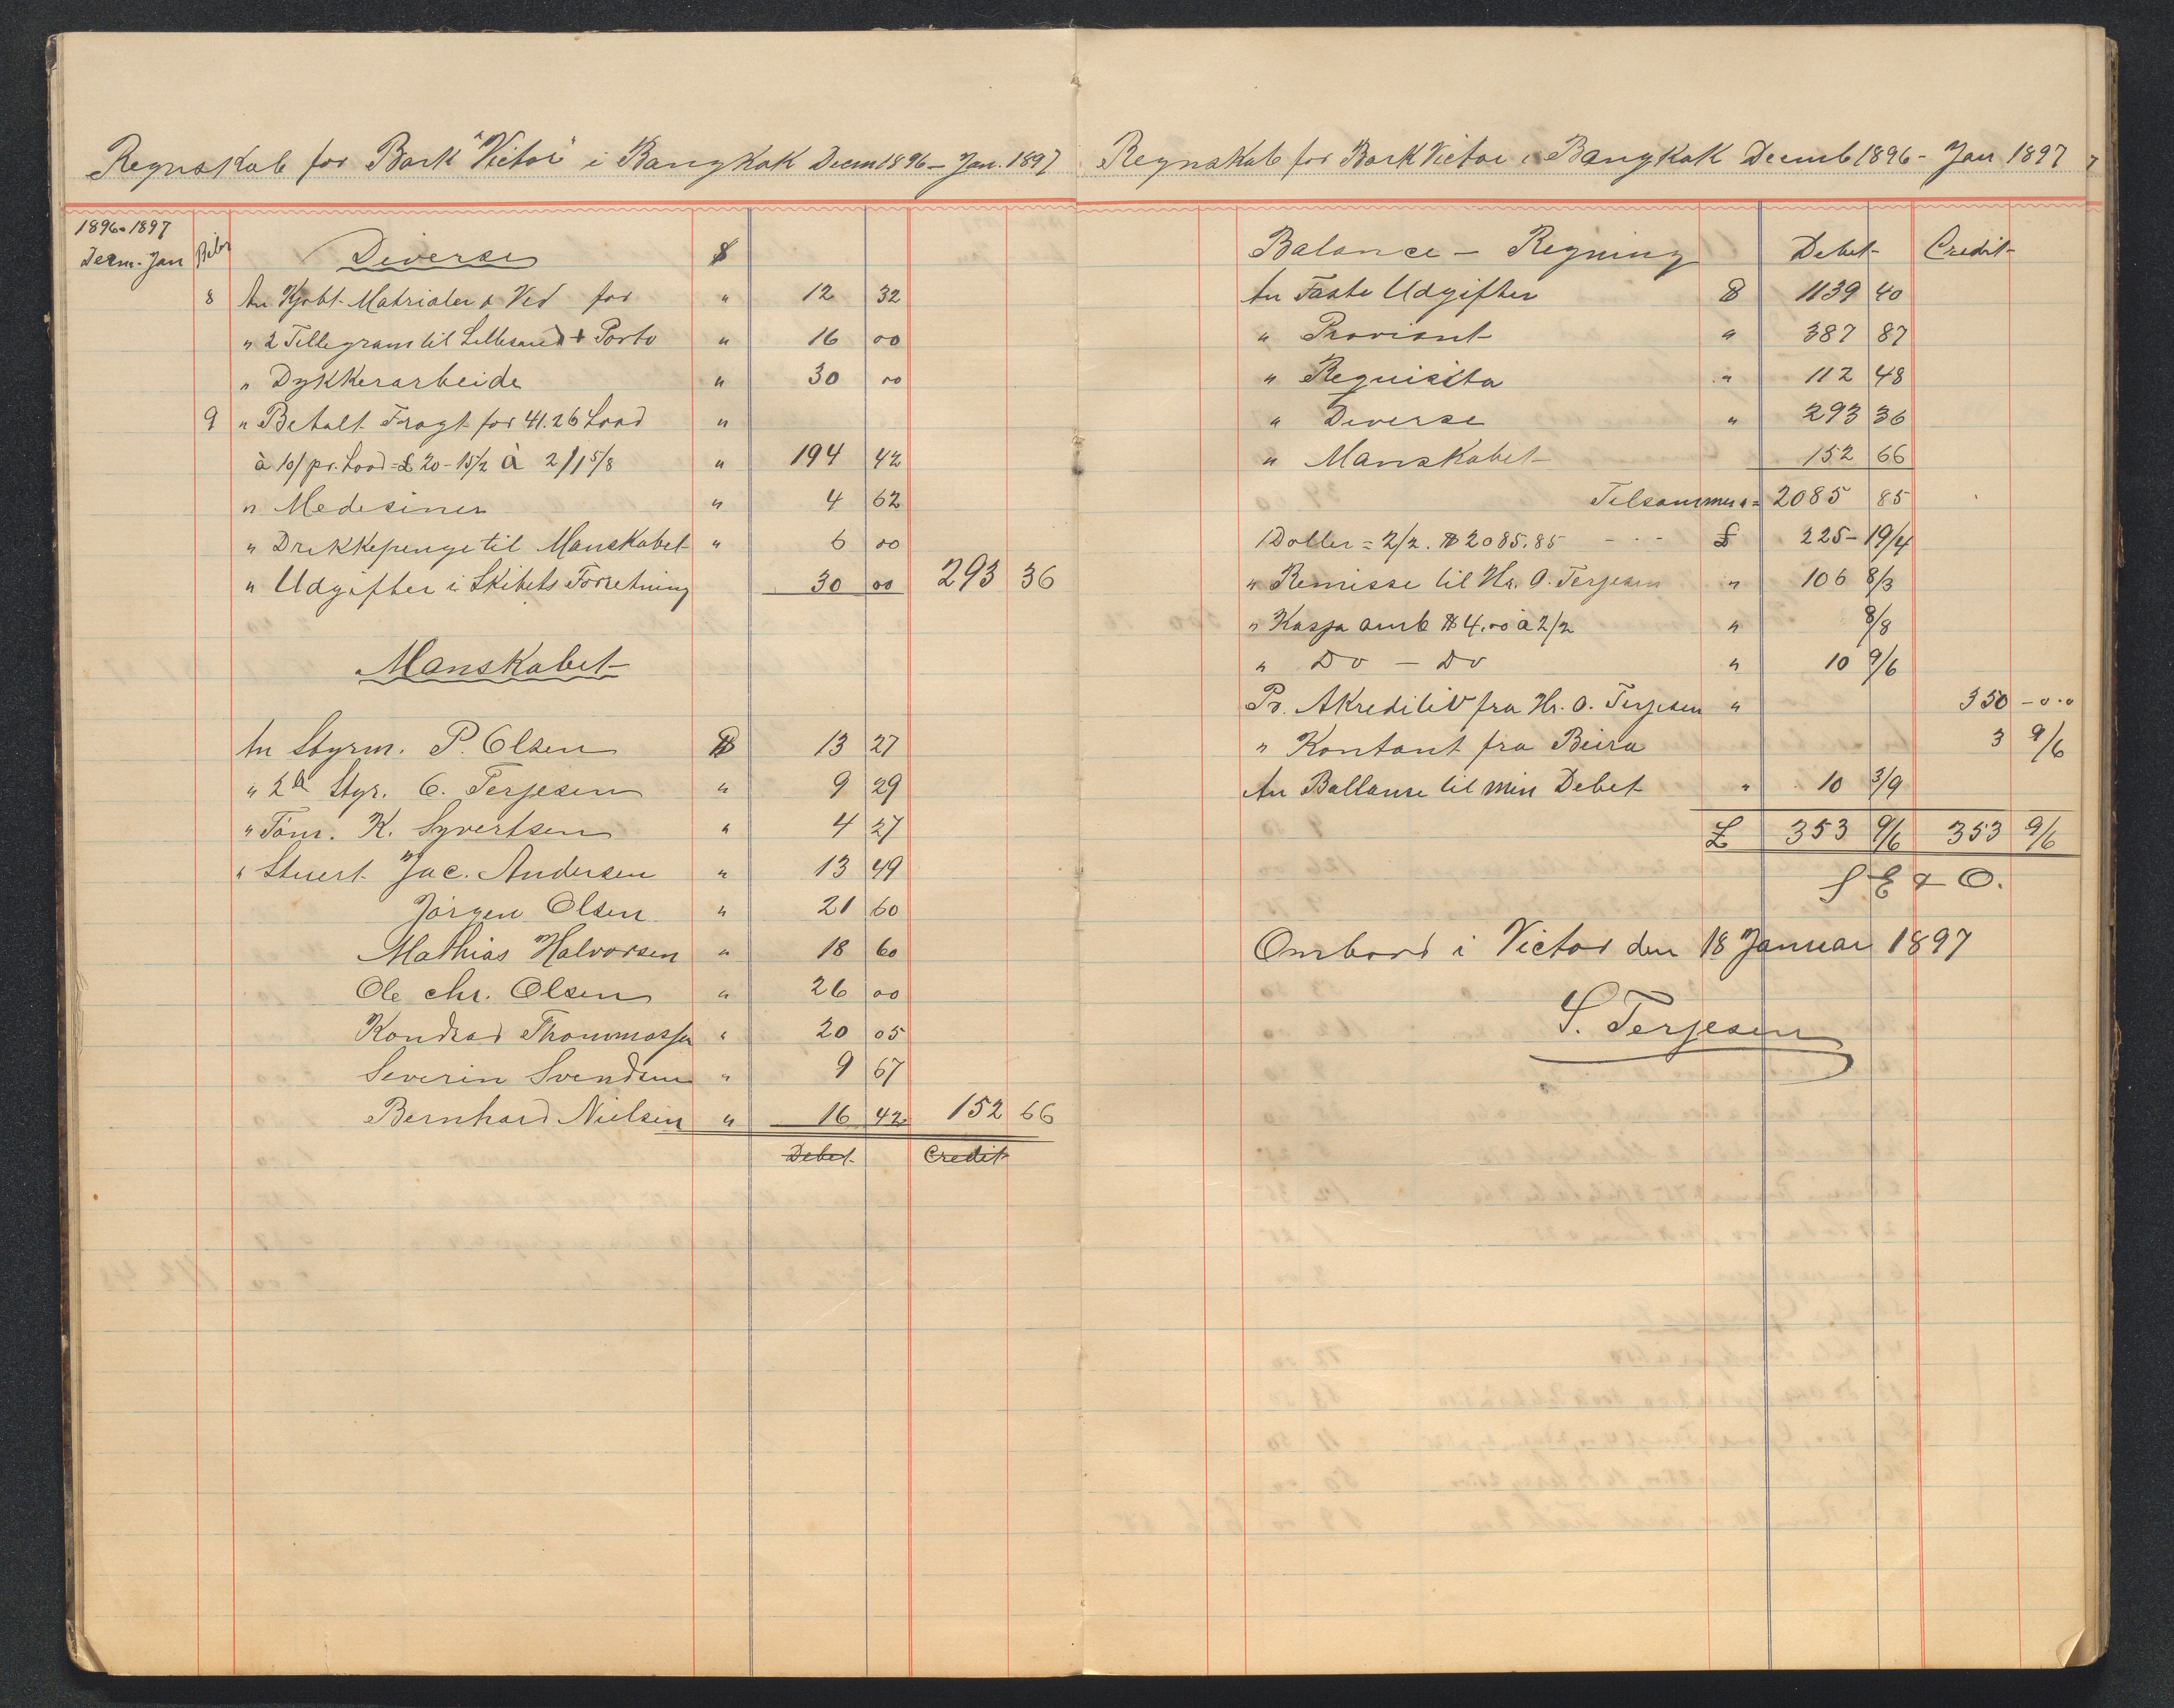 Regnskab for Bark "Victor" i BangKok Decm 1896 - Jan. 1897
1896-1897
Decm. Jan Bilag
Diverse $
8 An Kjøbt Matrialer & Ved for " 12 32
" 2 Tellegram til Lillesand & Porto " 16 00
" Dykkerarbeide " 30 00
9 " Betalt Fragt for 41.26 Load "
à 10/ pr. Load = £ 20-15/2 à 2/1 5/8 " 194 42
" Medesiner " 4 62
" Drikkepenge til Manskabet " 6 00
" Udgifter i Skibets Forretning 30 00 293 36
Manskabet
An Styrm. P. Olsen $ 13 27
" 2d Styr. C. Terjesen " 9 29
" Tøm. K. Syvertsen " 4 27
" Stuert Jac. Andersen " 13 49
Jørgen Olsen " 21 60
Mathias Halvorsen " 18 60
Ole Chr. Olsen " 26 00
Kondrad Thommassen " 20 05
Severin Svendsen " 9 67
Bernhard Nielsen " 16 42 152 66
Debet Credit
Regnskab for Bark Victor i BangKok Decemb 1896 - Jan 1897 7
Balance - Regning Debet Credit
An Faste Udgifter $ 1139 40
" Proviant " 387 87
" Requisita " 112 48
" Diverse " 293 36
" Manskabet 152 66
Tilsammen = 2085 85
1 Doller = 2/2. $ 2085.85 - - - £ 225 - 19/4
" Remisse til Hr. O. Terjesen " 106 8/3
" Kassa amb $ 4.00 à 2/2 " 8/8
" Do - Do " 10 9/6
Pr. Akreditiv fra Hr. O. Terjesen " 350 - 0.0
" Kontant fra Beira 3 9/6
An Ballanse til min Debet " 10 3/9
£ 353 9/6 353 9/6
S E & O.
Ombord i Victor den 18 Januar 1897
S. Terjesen